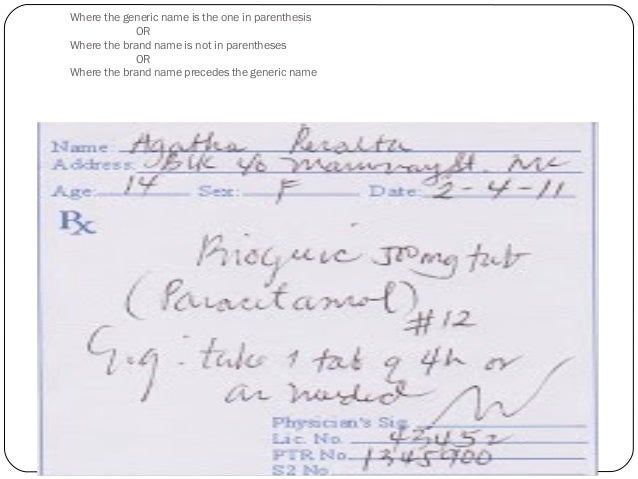 Where the generic name is the one in parenthesis
OR
Where the brand name is not in parentheses
OR
Where the brand name precedes the generic name
Name Agatha Peralta
Address: Blk 40 St.
Age: 14 Sex: F Date: 2-4-11
Rx
Biogesic 500mg tab
(Paracetamol)
#12
Sig: take 1 tab q 4h or
as needed
Physician's Sig.
Lic. No. 43452
PTR No. 1345900
S2 No